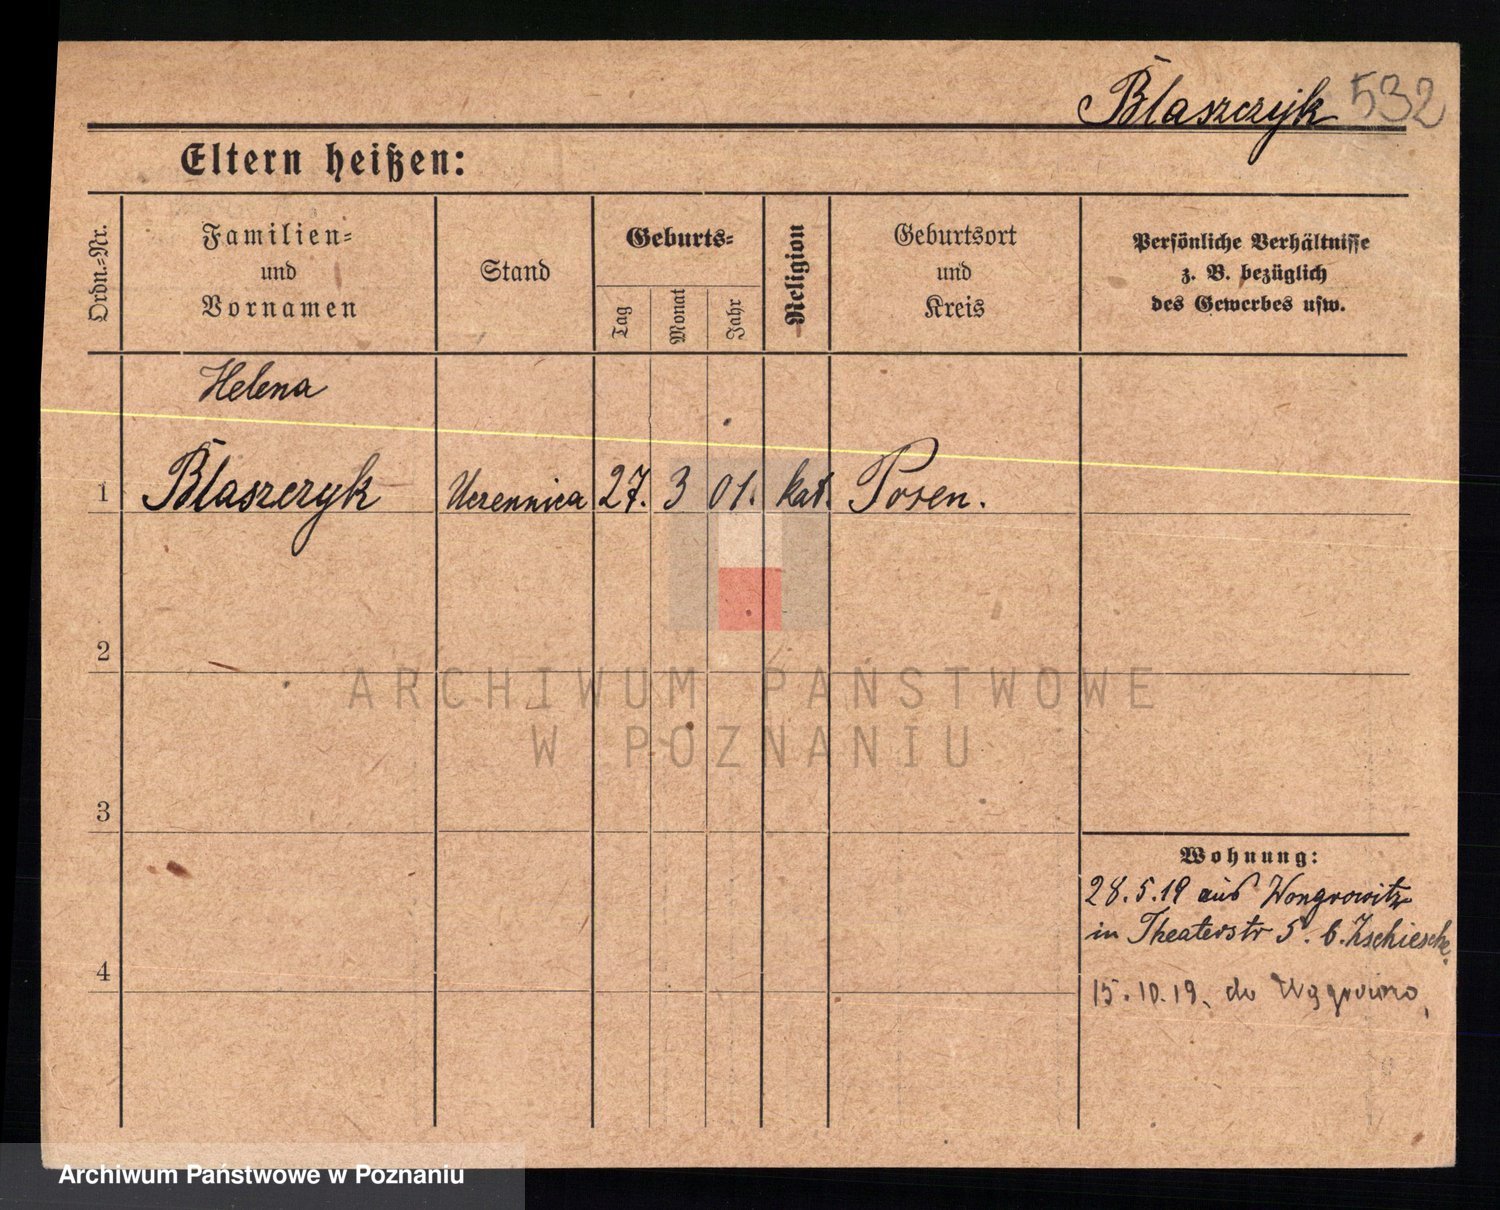 Blaszczyk 532
Eltern heißen:
Ordn.-Nr.
Familien-
und
Vornamen
Stand
Geburts-
Tag
Monat
Jahr
Religion
Geburtsort
und
Kreis
Persönliche Verhältnisse
z. B. bezüglich
des Gewerbes usw.
Helena
1 Blaszczyk Uczennica 27. 3 01. kat. Posen.
2
ARCHIWUM PAŃSTWOWE
W POZNANIU
3
Wohnung:
28.5.19 aus Wongrowitz
in Theaterstr 5. b. Zschiesche
4
15.10.19. do Wągrowca,
Archiwum Państwowe w Poznaniu